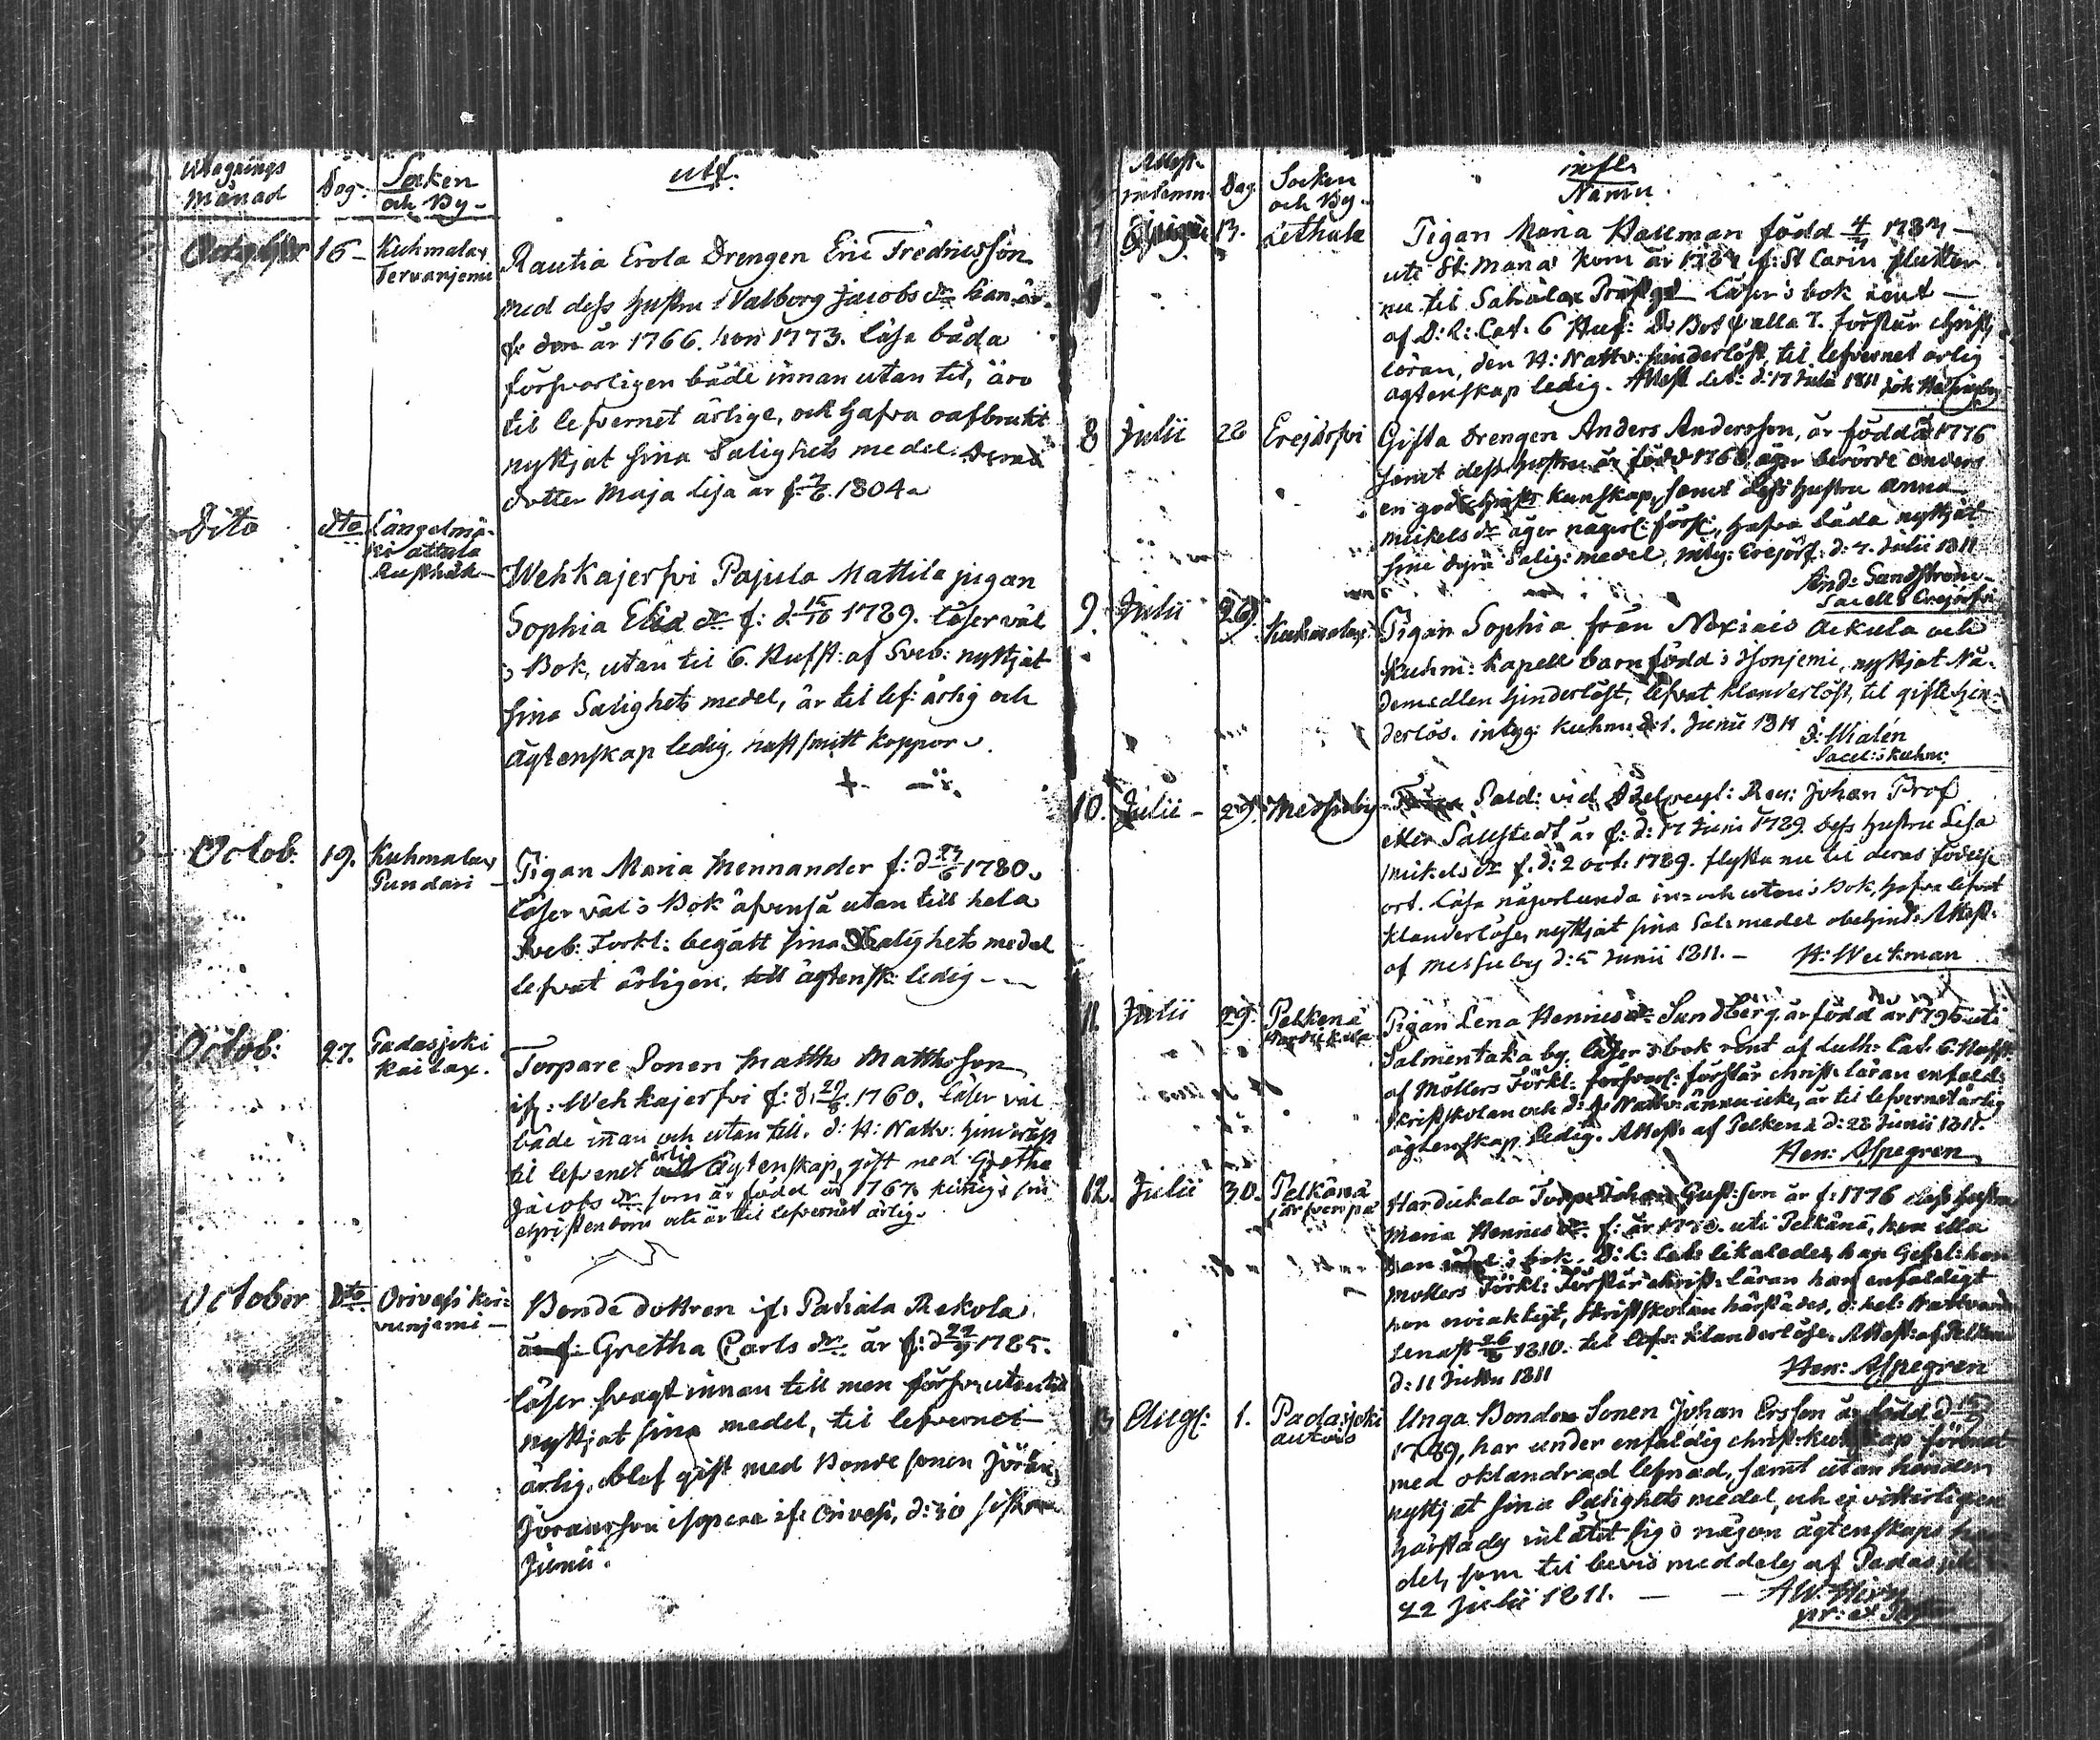 Utagnings månad Dag. Socken och By - utf.
October 16 - Kuhmalax Tervanjemi
Rautia Erola Drengen Eric Fredricsson
med dess hustru Walborg Jacobs dr han är
f: den år 1766. hon 1773. läsa båda
försvarligen både innan utan til, äro
til lefvernet ärlige, och hafva oafbrutit
nyttjat sina Salighets medel. Deras
dotter Maja Lisa är f: 7/6. 1804.
Dito Dto Längelmä- ki attula Rusthåll
Wehkajerfvi Pajula Mattila pigan
Sophia Elia dr f: d. 15/10 1789. läser väl
i Bok, utan til 6. Hufst: af Sveb: nyttjat
sina Salighets medel, är til lef: ärlig och
ägtenskap ledig, haft smitt koppor.
8 Octob: 19. Kuhmalax Pundari -
Pigan Maria Mennander f: d 23/6 1780.
läser väl i Bok äfvenså utan till hela
Sveb: Forkl: begått sina Salighets medel
lefvat ärligen, till ägtensk: ledig - -
9 Octob: 27. Padasjoki Kailax.
Torpare Sonen Matths Mattsson
if: Wehkajerfvi f: d. 21/8. 1760. läser väl
både innan och utan till. d: H: Nattv: hinderlöst
til lefvenet ärlig ägtenskap, gift med Gretha
Jacobs dr som är född år 1767. kunnig i sin
christendom och är til lefvernet ärlig.
October Dto Orivesi Kor: vunjemi -
Bonde dottren if: Pahala Rekola
är f: Gretha Carls dr är f: d 29/9 1785.
läser svagt innan till men försv: utantill
nyttjat sina medel, til lefvernet
ärlig, blef gift med Bonde sonen Jöran
Joransson isopere if: Orivesi, d: 30 sistne
Junii.
Attest. inlemn. Dag Socken och By - infl. Namn.
13. Lethula
Pigan Maria Hallman född 4/7 178
uti St: Maria kom år 178 if: St Carin flutter
nu til Sahalax Prästgd läser i bok rent -
af D: L: Cat: 6 Huf: D. Bot Ps alla 7. förstår christ:
läran, den H: Nattv: hinderlöst, til lefvernet ärlig
ägtenskap ledig. Attest let: d: 17 Julii 1811
8 Julii 28 Erejärfvi
Gifta Drengen Anders Andersson, är född år 1776
samt dess hustru är född 1768 äger berörde Anders
en god christ: kunskap, samt dess hustru Anna
Mickels dr äger någorl: försv:, hafva båda nyttjat
sine dyra Salig: medel, intyg: Erejerf: d: 4. Julii 1811
And: Sandström
Sacell: i Erejerfvi
9. Julii 29. Kuhmalax
Pigan Sophia från Nexiais Ackula och
Kuhm: Kapell barn född i Honjemi, nyttjat Nå-
demedlen hinderlöst, lefvat klanderlöst, til gifte hin-
derlös. intyg: Kuhm: d: 1. Junii 1811 J: Walén
Sacel: i Kuhm:
10. Julii - 29. Messuby
Sold: vid Adelregl: Reg: Johan Prof
eller Sallstedt är f: d: 17 Junii 1789. dess hustru Lisa
Mikels dr f. d: 2 oct: 1789. flytta nu til deras födelse
ort. Läsa någorlunda in- och utan i Bok, hafva lefvat
klanderlöse, nyttjat sina Sal: medel obehind: Attest:
af Messuby d: 5 Junii 1811. - H: Weckman
11. Julii 29. Pelkenä Hardikala
Pigan Lena Hennics dr Sundberg är född år 1795 uti
Salmentaka by. läser i bok rent af Luth: Cat: 6. Hufst:
af Möllers Förkl: försvarl: förstår christ: läran enfald:
skriftskolan och d: H: Nattv: ännu icke, är til lefvernet ärlig
ägtenskap ledig. Attest: af Pelkenä d: 28 Junii 1811.
Hen: Aspegren
12. Julii 30. Pelkänä Järfvenpä
Hardickala Torp: Johan Gust:son är f: 1776 dess hustru
Maria Hennics dr f: år 1770. uti Pelkänä, hon illa
han i bok. D: L: Cat: likaledes, han Gesel: hon
Mollers Förkl: Förstår christ: läran han enfaldigt
hon owiaktigt, Skriftskolan härstädes, d: hel: Nattvarden
senast 26/ 1810. til lefv: klanderlöse. Attest: af Pelkene
d: 11 Julii 1811 Hen: Aspegren
13 Aug: 1. Padasjoki Autois
Unga Bonden Sonen Johan Ersson är född d: 15/9
1789, har under enfaldig christ: kunskap förenat
med oklandrad lefnad, samt utan hinder
nyttjat sina Salighets medel, och ej vitterligen
härstädes inlåtit sig i någon ägtenskaps han-
del, som til bevis meddelas af Padasjoki
22 Julii 1811. - - A W: